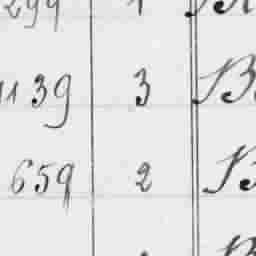 299 1
1139 3 B
659 2 B